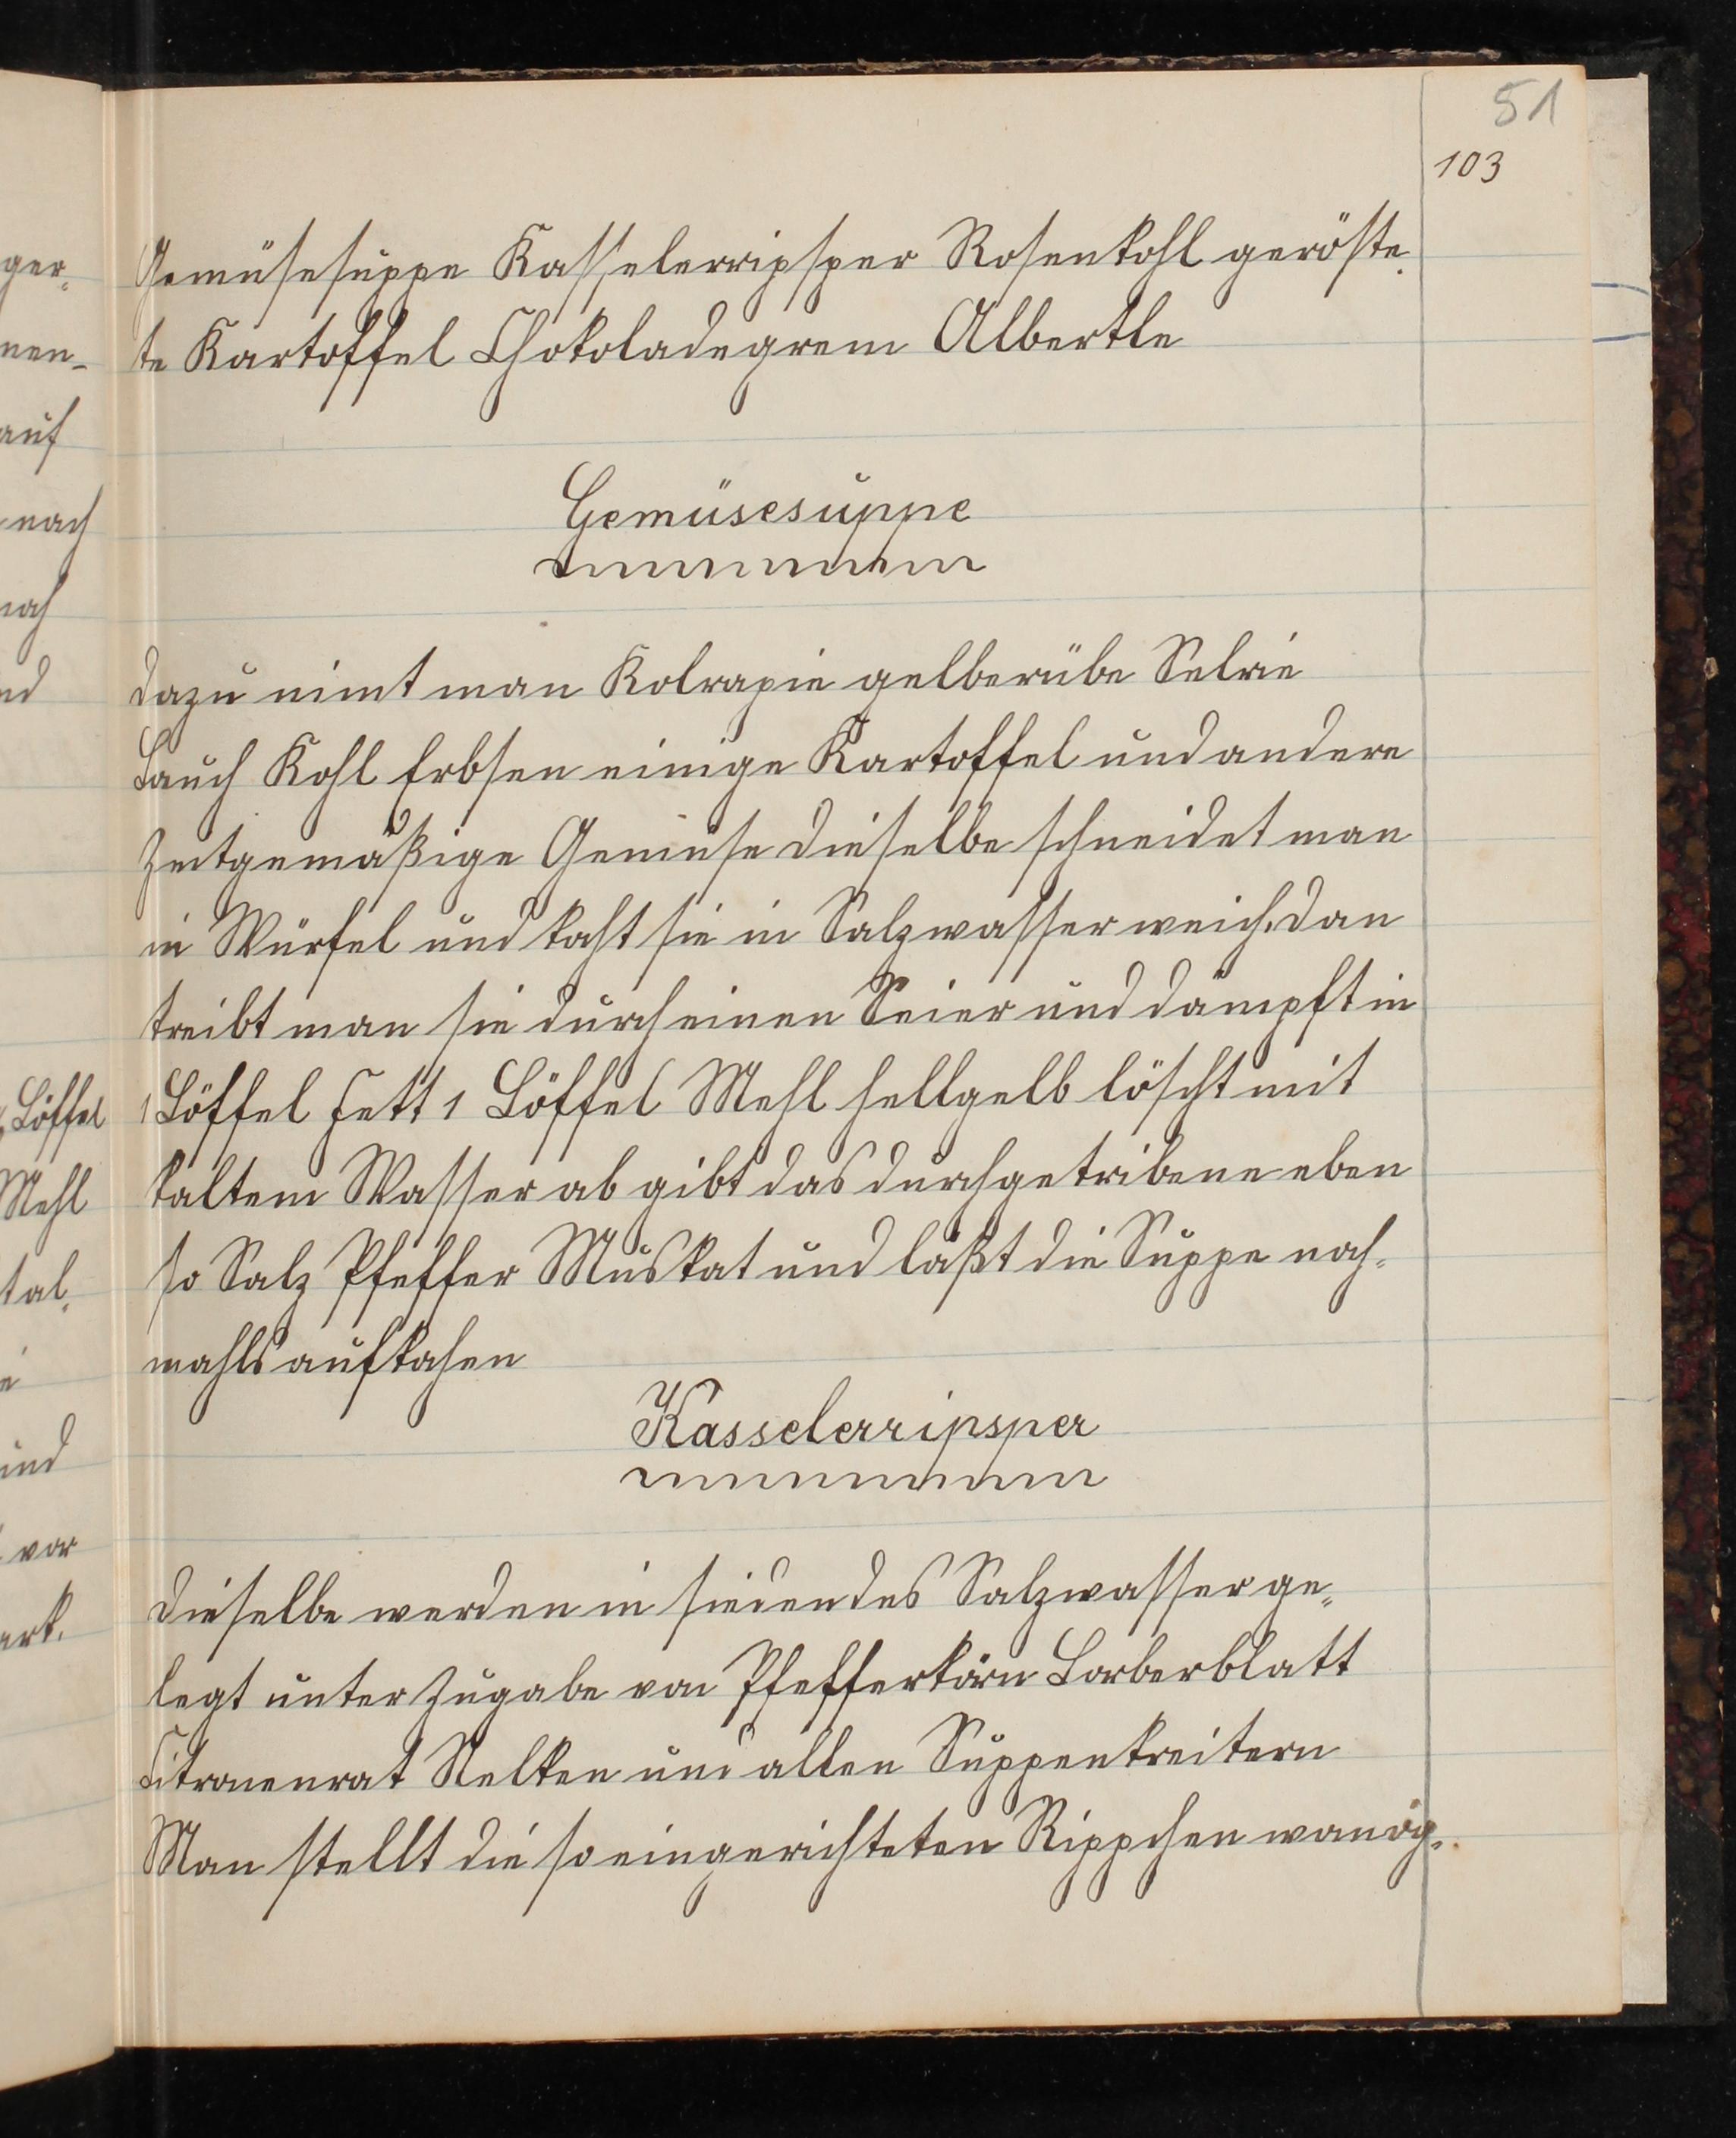 51
103
Gemüsesuppe Kasselerripsper Rosenkohl geröste-
te Kartoffel Chokoladegrem Albertle
Gemüsesuppe
dazu nimt man Kolrapie gelberübe Selrie
Lauch Kohl Erbsen einige Kartoffel und andere
Zeitgemäßige Gemüse dieselbe schneidet man
in Würfel und kocht sie in Salzwasser weich. dan
treibt man sie durch einen Seier und dämpft in
1 Löffel Fett 1 Löffel Mehl hellgelb löscht mit
kaltem Wasser ab gibt das durchgetribene eben
so Salz Pfeffer Muskat und läßt die Suppe noch-
mahls aufkochen
Kasselerripsper
dieselbe werden in siedendes Salzwasser ge-
legt unter Zugabe von Pfefferkörn Lorberblatt
Citronenrat Nelken und allen Suppenkreitern
Man stellt die so eingerichteten Rippchen
ger-
nen-
auf
nach
noch
nd
Löffel
Mehl
tal-
und
vor
ark.